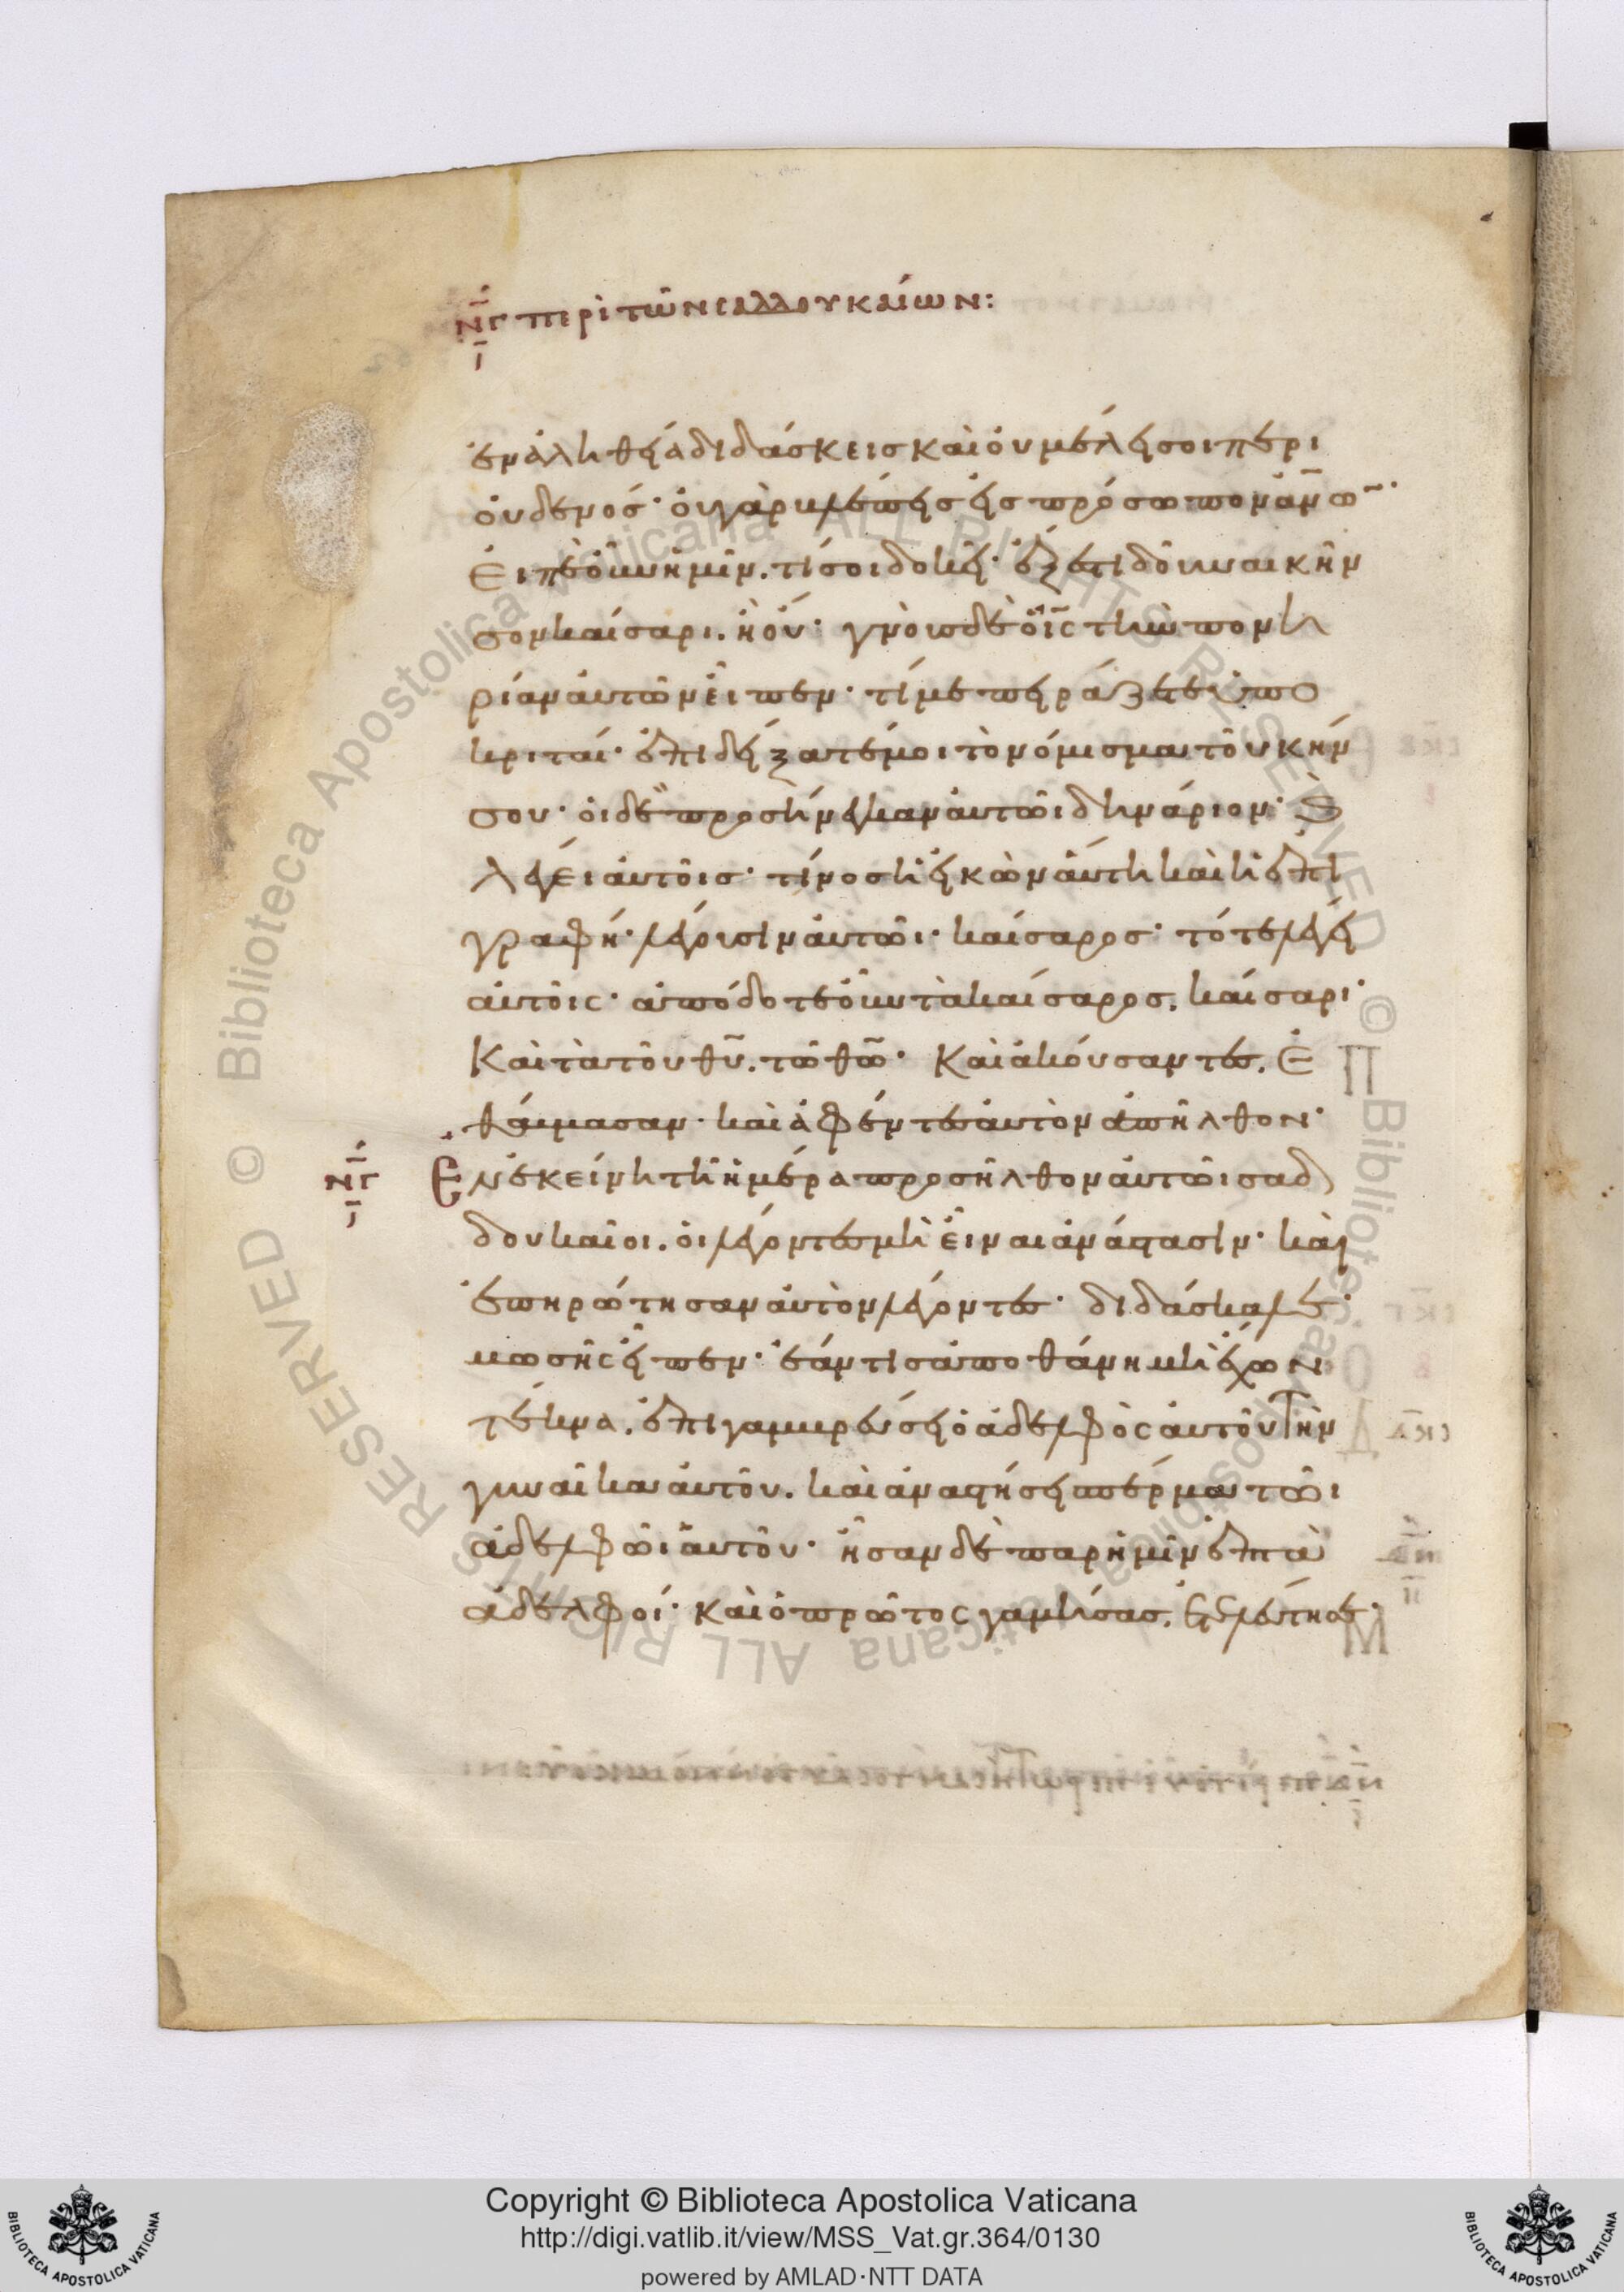 νς περὶ τῶν σαδδουκαίων:
ι
ἐν ἀληθεία διδάσκεις καὶ ὀυ μέλει σοι περι
ὀυδενός· ὀυ γὰρ βλέπεις εἰς πρόσωπον ἀν̅ω̅ν̅·
Ἐιπὲ ὀῦν ἡμῖν. τί σοι δοκεῖ· ἔξεστι δοῦναι κῆν
σον καίσαρι. ἢ ὀύ· γνοὺς δὲ ὁ ι̅ς̅ τὴν πονη
ρίαν ἀυτῶν ἐῖπεν· τί με πειράζετε ὑπο
κριταί· ἐπιδείξατέ μοι τὸ νόμισμα τοῦ κήν
σου· ὁι δὲ προσήνεγκαν ἀυτῶι δηνάριον· Καὶ
λέγει ἀυτοῖς· τίνος ἡ εἰκὼν ἁύτη καὶ ἡ ἐπι
γραφή· λέγουσιν ἀυτῶι· καίσαρος· τότε λέγει
ἀυτοῖς· ἀπόδοτε ὀῦν τὰ καίσαρος. καίσαρι·
Καὶ τὰ τοῦ θ̅υ̅. τῶ θ̅ω̅· Καὶ ἀκούσαντες. Ἐ
θάυμασαν· καὶ ἀφέντες ἀυτὸν ἀπῆλθον·
νς Ἐν ἐκείνη τῆ ἡμέρα προσῆλθον ἀυτῶι σαδ
ι
δουκαῖοι. ὁι λέγοντες μὴ ἐῖναι ἀνάστασιν· καὶ
ἐπηρώτησαν ἀυτὸν λέγοντες· διδάσκαλε·
μωσῆς εἶπεν· ἐάν τις ἀποθάνη μὴ ἔχων
τέκνα. ἐπιγαμβρεύσει ὁ ἀδελφὸς ἀυτοῦ τὴν
γυναῖκα ἀυτοῦ. καὶ ἀναστήσει σπέρμα τῶι
ἀδελφῶι ἀυτοῦ· ἦσαν δὲ παρ ἡμῖν ἐπτὰ
ἀδελφοί· καὶ ὁ πρῶτος γαμήσας. ἐτελέυτησε·
BIBLIOTECA APOSTOLICA VATICANA
Copyright © Biblioteca Apostolica Vaticana
http://digi.vatlib.it/view/MSS_Vat.gr.364/0130
powered by AMLAD·NTT DATA
BIBLIOTECA APOSTOLICA VATICANA
© Biblioteca Apostolica Vaticana ALL RIGHTS RESERVED
© Biblioteca Apostolica Vaticana ALL RIGHTS RESERVED